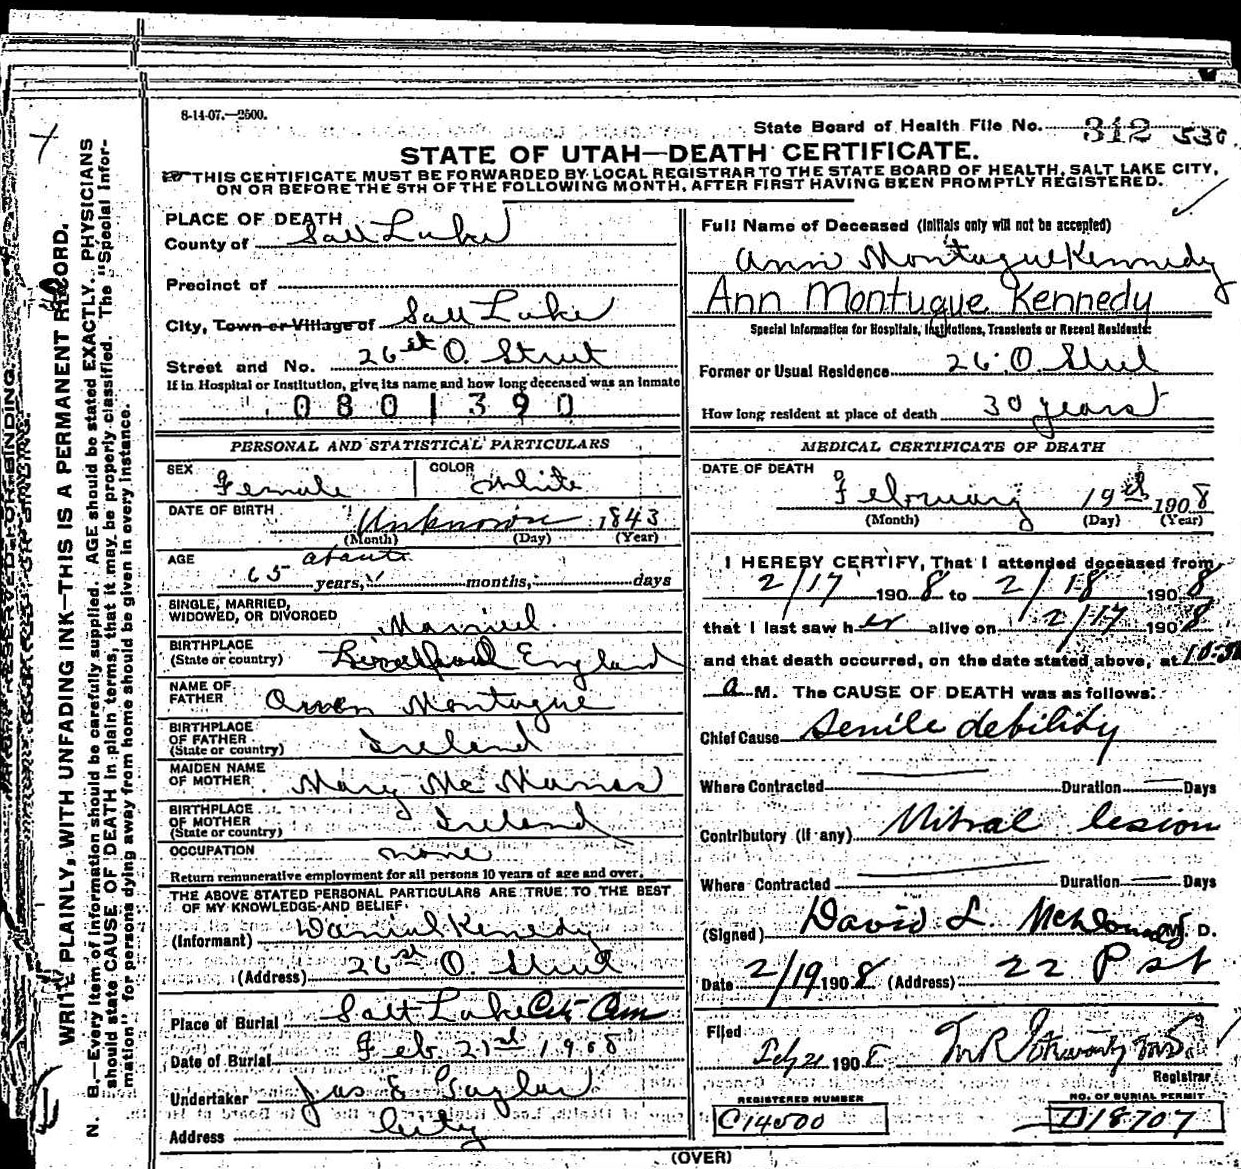 8-14-07.—2500.
State Board of Health File No. 312 530
STATE OF UTAH—DEATH CERTIFICATE.
THIS CERTIFICATE MUST BE FORWARDED BY LOCAL REGISTRAR TO THE STATE BOARD OF HEALTH, SALT LAKE CITY,
ON OR BEFORE THE 5TH OF THE FOLLOWING MONTH, AFTER FIRST HAVING BEEN PROMPTLY REGISTERED.
PLACE OF DEATH
County of Salt Lake
Precinct of
City, Town or Village of Salt Lake
Street and No. 26 st O. Street
If in Hospital or Institution, give its name and how long deceased was an inmate
0801390
PERSONAL AND STATISTICAL PARTICULARS
SEX Female COLOR White
DATE OF BIRTH Unknown 1843
(Month) (Day) (Year)
AGE about 65 years, months, days
SINGLE, MARRIED,
WIDOWED, OR DIVORCED Married.
BIRTHPLACE
(State or country) Liverpool England
NAME OF
FATHER Owen Montague
BIRTHPLACE
OF FATHER
(State or country) Ireland
MAIDEN NAME
OF MOTHER Mary Mc Manus
BIRTHPLACE
OF MOTHER
(State or country) Ireland
OCCUPATION none
Return remunerative employment for all persons 10 years of age and over.
THE ABOVE STATED PERSONAL PARTICULARS ARE TRUE TO THE BEST
OF MY KNOWLEDGE AND BELIEF
(Informant) Daniel Kenedy
(Address) 26 st O. Street
Place of Burial Salt Lake City Cem
Date of Burial Feb 21st 1908
Undertaker Jas E Taylor
Address City
Full Name of Deceased (Initials only will not be accepted)
Ann Montague Kennedy
Ann Montugue Kennedy
Special Information for Hospitals, Institutions, Transients or Recent Residents:
Former or Usual Residence 26 O. Street
How long resident at place of death 30 years
MEDICAL CERTIFICATE OF DEATH
DATE OF DEATH
February 19th 1908
(Month) (Day) (Year)
I HEREBY CERTIFY, That I attended deceased from
2/17 1908 to 2/18 1908
that I last saw her alive on 2/17 1908
and that death occurred, on the date stated above, at 10:30
a M. The CAUSE OF DEATH was as follows:
Chief Cause Senile debility
Where Contracted Duration Days
Contributory (if any) Mitral lesion
Where Contracted Duration Days
(Signed) David L. M. D.
Date 2/19 1908 (Address) 22 P st
Filed
Feby 21 1908
Registrar
REGISTERED NUMBER
C14500
NO. OF BURIAL PERMIT
D18707
(OVER)
WRITE PLAINLY, WITH UNFADING INK—THIS IS A PERMANENT RECORD.
N. B.—Every item of information should be carefully supplied. AGE should be stated EXACTLY. PHYSICIANS
should state CAUSE OF DEATH in plain terms, that it may be properly classified. The "Special Infor-
mation" for persons dying away from home should be given in every instance.